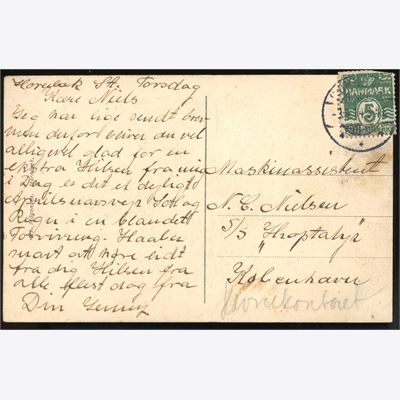 Hornbæk St. Torsdag
Kære Niels
Jeg har lige sendt brev
men derfor bliver du vel
alligevel glad for en
ekstra Hilsen fra mig
i Dag er det et dejligt
Aprilsmaasvejr Sol og
Regn i en blandet
Forvirring. Haaber
snart at høre lidt
fra dig Hilsen fra
alle flest dog fra
Din Jenny
DANMARK
5
Maskinassistent
N. C. Nielsen
S/S
København